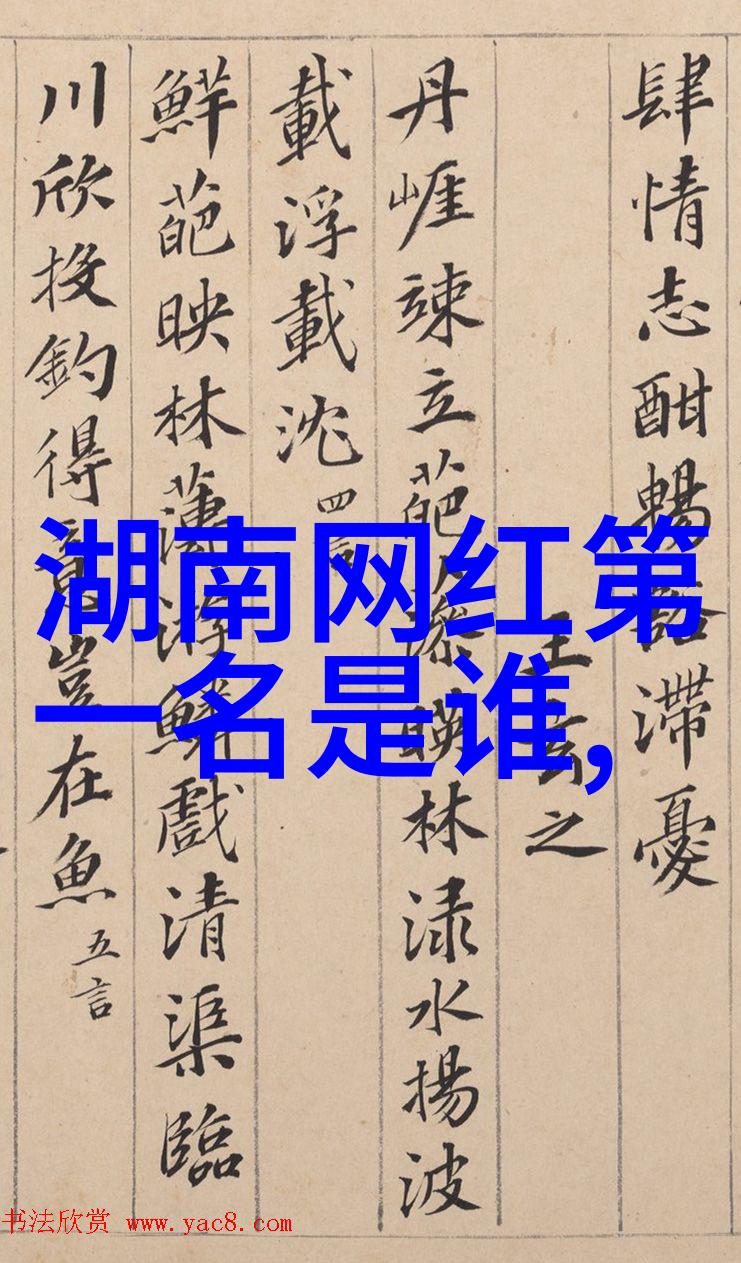 肆情志酣暢豁滯憂
王玄之
丹崖竦立葩藻暎林淥水揚波
載浮載沈四言
鮮葩映林薄游鱗戲清渠臨
川欣投釣得意豈在魚五言
湖南网红第
一名是谁,
书法欣赏 www.yac8.com